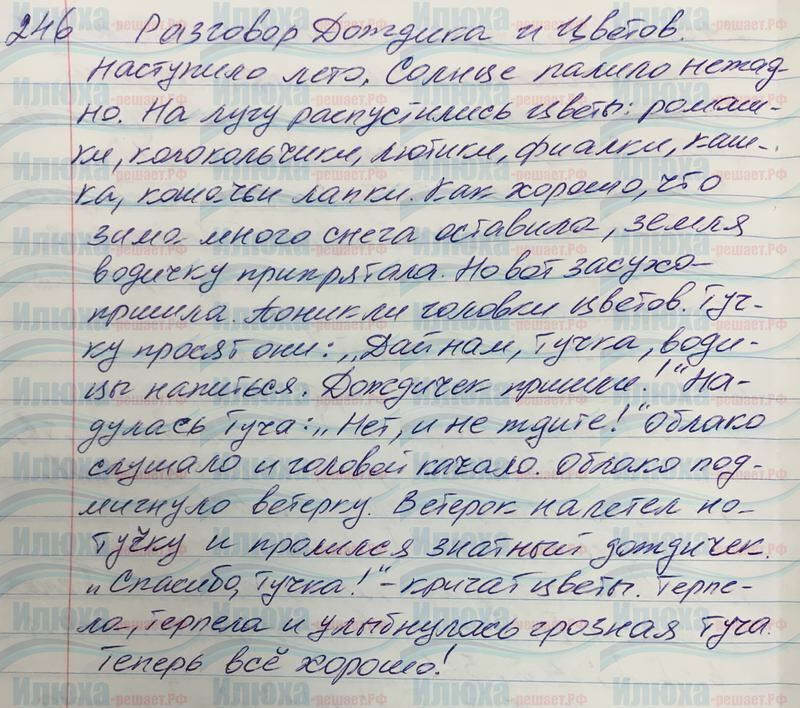 246 Разговор Дождика и Цветов.
Наступило лето. Солнце палило нежад-
но. На лугу распустились цветы: ромаш-
ки, колокольчики, лютики, фиалки, каш-
ка, кошачьи лапки. Как хорошо, что
зима много снега оставила, земля
водичку припрятала. Но вот засуха
пришла. Поникли головки цветов. Туч-
ку просят они: „Дай нам, Тучка, води-
цы напиться. Дождичек пришли!" На-
дулась Туча: „Нет, и не ждите!" Облако
слушало и головой качало. Облако под-
мигнуло ветерку. Ветерок налетел на
тучку и пролился знатный дождичек.
„Спасибо, Тучка!" - кричат цветы. Терпе-
ла, терпела и улыбнулась грозная Туча.
Теперь всё хорошо!